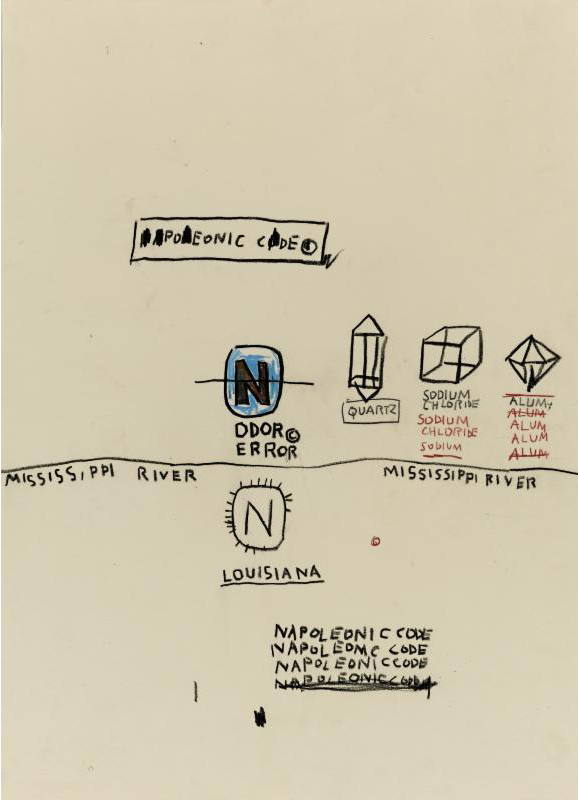 NAPOLEONIC CODE©
N
ODOR©
ERROR
QUARTZ
SODIUM
CHLORIDE
SODIUM
CHLORIDE
SODIUM
ALUM
ALUM
ALUM
ALUM
ALUM
MISSISSIPPI RIVER
MISSISSIPPI RIVER
N
©
LOUISIANA
NAPOLEONIC CODE
NAPOLEONIC CODE
NAPOLEONIC CODE
NAPOLEONIC CODE